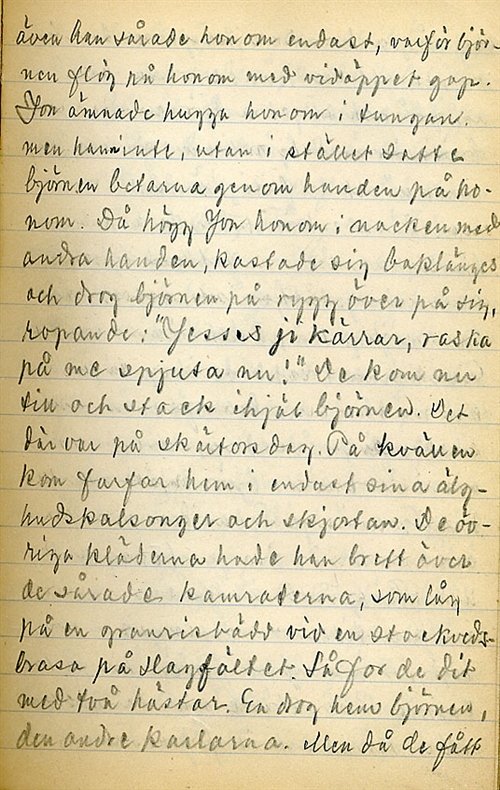 även han sårade honom endast, varför björ-
nen flög på honom med vidöppet gap.
Jon ämnade hugga honom i tungan.
men hann inte, utan i stället satte
björnen betarna genom handen på ho-
nom. Då högg Jon honom i nacken med
andra handen, kastade sig baklänges
och drog björnen på rygg över på sig,
ropande: "Jesses ji kärrar, raska
på me spjuta nu!" De kom nu
till och stack ihjäl björnen. Det
där var på skärtorsdag. På kvällen
kom farfar hem i endast sina älg-
hudskalsonger och skjortan. De öv-
riga kläderna hade han brett över
de sårade kamraterna, som låg
på en granrisbädd vid en stockveds-
brasa på slagfältet. Så for de dit
med två hästar. En drog hem björnen,
den andre karlarna. Men då de fått